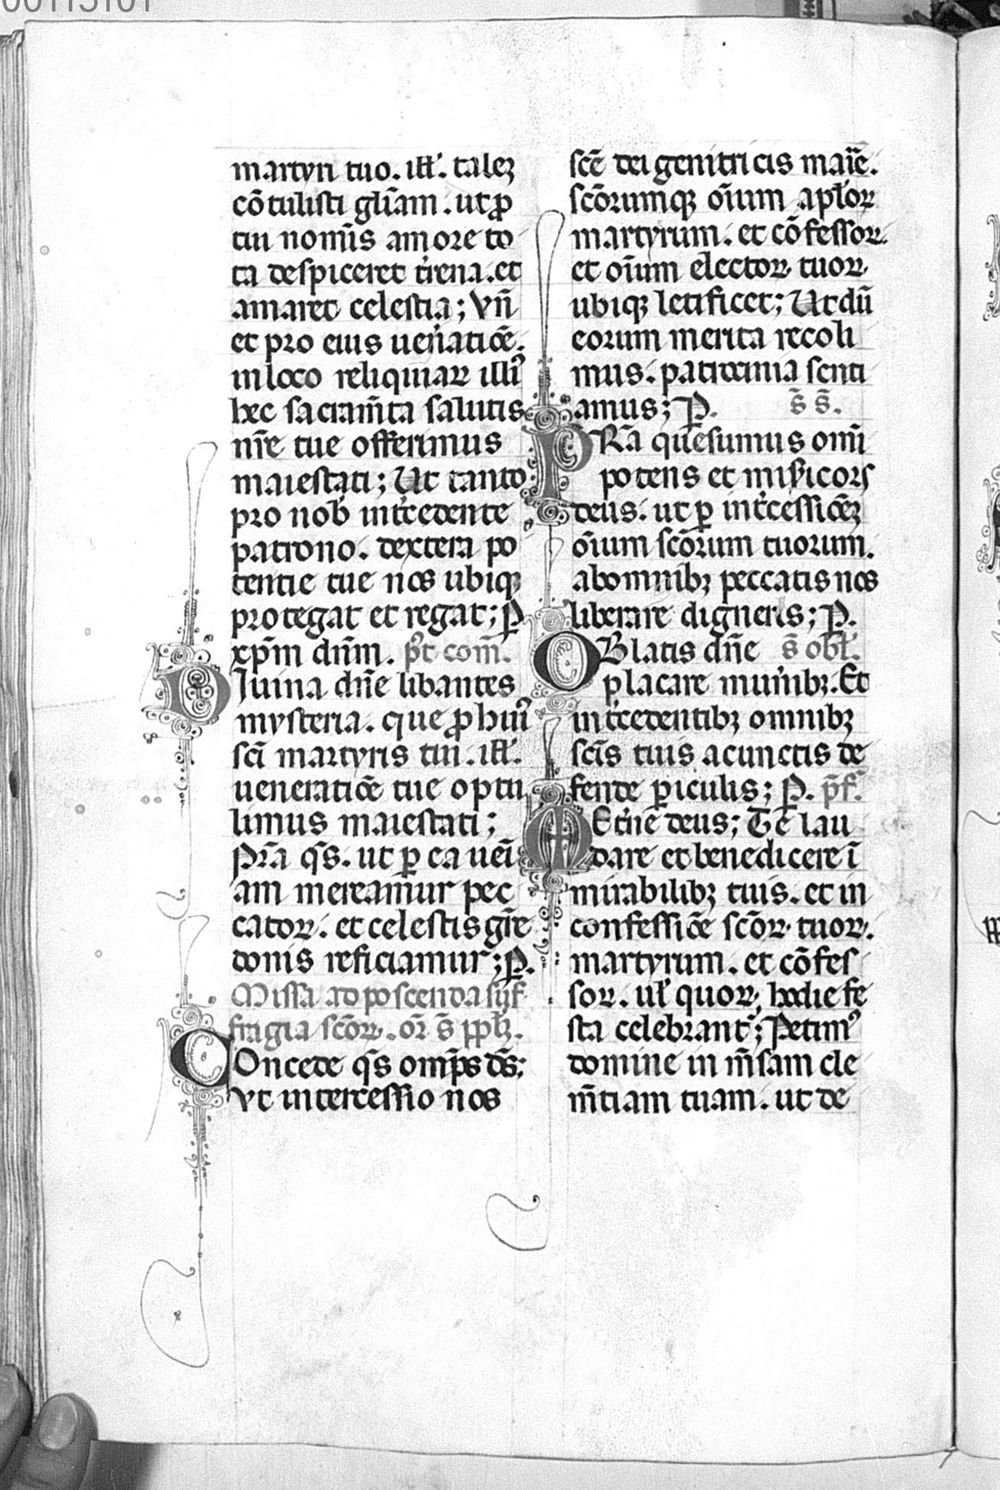 00113101
martyri tuo. ill̃. talez
cõtulisti gl̃iam. ut ꝓ
tui nom̃is amore to
ta despiceret t̃rena. et
amaret celestia; Vñ
et pro eius ueñatiõe.
in loco reliquiaꝝ illiꝰ
hec sacram̃ta salutis
nr̃e tue offerimus
maiestati; Ut tanto
pro nob̃ int̃cedente
patrono. dextera po
tentie tue nos ubiqꝫ
protegat et regat; ꝑ
xp̃m dñm. p̃t com̃.
Diuina dñe libantes
mysteria. que ꝓ huiꝰ
sc̃i martyris tui. ill̃.
ueneratiõe tue optu
limus maiestati;
Pr̃a q̃s. ut ꝑ ea uei
am mereamur pec
catoꝝ. et celestis gr̃e
donis reficiamur; P̱.
Missa ad poscenda suf
fragia sc̃oꝝ. or̃ s̃ pp̃lꝫ.
Concede q̃s omp̃s d̃s;
Vt intercessio nos
sc̃e dei genitricis maĩe.
sc̃orumqꝫ oĩum apl̃oꝝ
martyrum. et cõfessoꝝ.
et oĩum electoꝝ tuoꝝ.
ubiqꝫ letificet; Ut dũ
eorum merita recoli
mus. patrocinia senti
amus; P̱. s̃ s̃.
PRa quesumus om̃i
potens et mis̃icors
deus. ut ꝑ int̃cessiõeꝫ
oĩum sc̃orum tuorum.
ab omnibꝫ peccatis nos
liberare digneris; P̱.
OBlatis dñe s̃ obl̃.
placare mun̾ibꝫ. Et
int̃cedentibꝫ omnibꝫ
sc̃is tuis a cunctis de
fende ꝑiculis; P̱. p̃f.
Et̃ne deus; Te lau
dare et benedicere ĩ
mirabilibꝫ tuis. et in
confessiõe sc̃oꝝ tuoꝝ.
martyrum. et cõfes
soꝝ. ul̃ quoꝝ hodie fe
sta celebrant᷑; Petimꝰ
domine in m̃sam cle
m̃tiam tuam. ut de